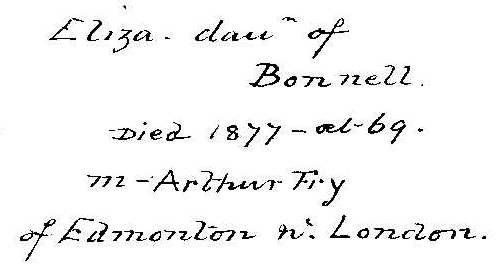 Eliza. dauʳ of
Bonnell.
Died 1877 - æt - 69.
m - Arthur Fry
of Edmonton nʳ. London.